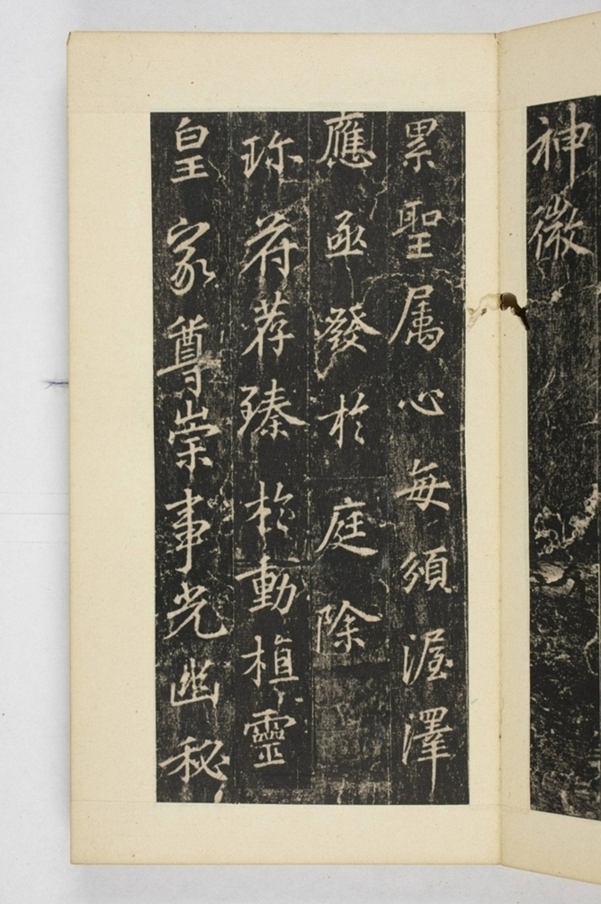 神微
累聖属心每須渥澤
應亟發於庭除
珎苻荐臻於動植靈
皇家尊崇事光幽秘